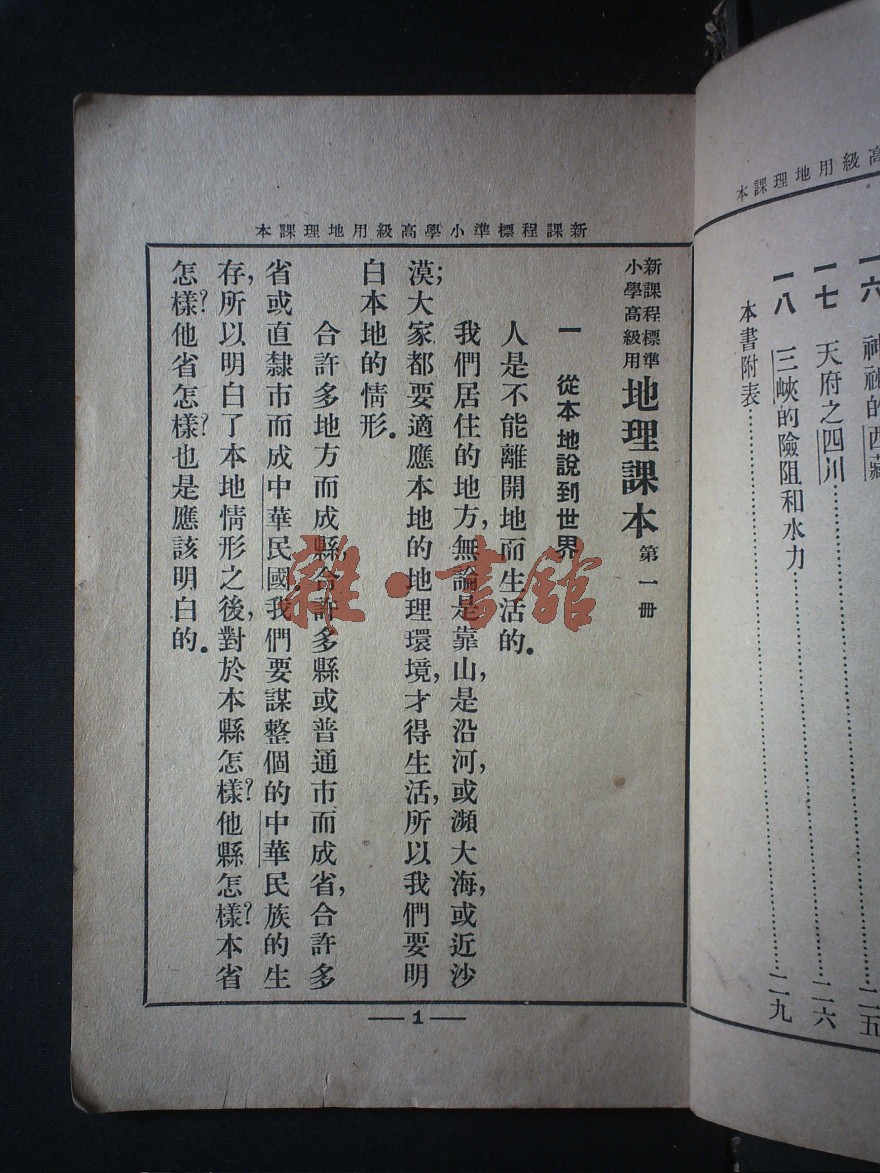 高級用地理課本
一六 神祕的西藏 二五
一七 天府之四川………………二六
一八 三峽的險阻和水力………………二九
本書附表………………
新課程標準小學高級用地理課本
新課程標準
小學高級用
地理課本 第一冊
一 從本地說到世界
人是不能離開地而生活的。
我們居住的地方，無論是靠山，是沿河，或瀕大海，或近沙
漠；大家都要適應本地的地理環境，才得生活，所以我們要明
白本地的情形。
合許多地方而成縣，合許多縣或普通市而成省，合許多
省或直隸市而成中華民國。我們要謀整個的中華民族的生
存，所以明白了本地情形之後，對於本縣怎樣？他縣怎樣？本省
怎樣？他省怎樣？也是應該明白的。
— 1 —
雜·書館